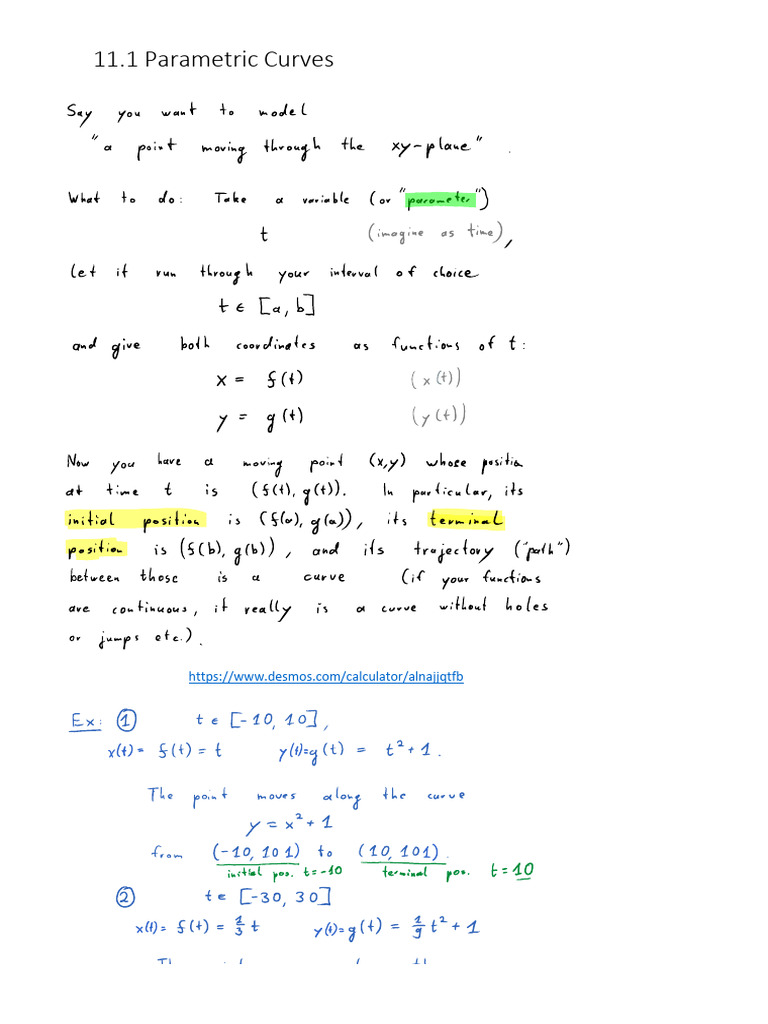 11.1 Parametric Curves
Say you want to model
"a point moving through the xy-plane".
What to do: Take a variable (or "parameter")
t (imagine as time),
let it run through your interval of choice
t ∈ [a, b]
and give both coordinates as functions of t:
x = f(t) (x(t))
y = g(t) (y(t))
Now you have a moving point (x,y) whose position
at time t is (f(t), g(t)). In particular, its
initial position is (f(a), g(a)), its terminal
position is (f(b), g(b)), and its trajectory ("path")
between those is a curve (if your functions
are continuous, it really is a curve without holes
or jumps etc.).
https://www.desmos.com/calculator/alnajjqtfb
Ex: ① t ∈ [-10, 10],
x(t) = f(t) = t y(t) = g(t) = t² + 1.
The point moves along the curve
y = x² + 1
from (-10, 101) to (10, 101).
initial pos. t=-10 terminal pos. t=10
② t ∈ [-30, 30]
x(t) = f(t) = 1/3 t y(t) = g(t) = 1/9 t² + 1